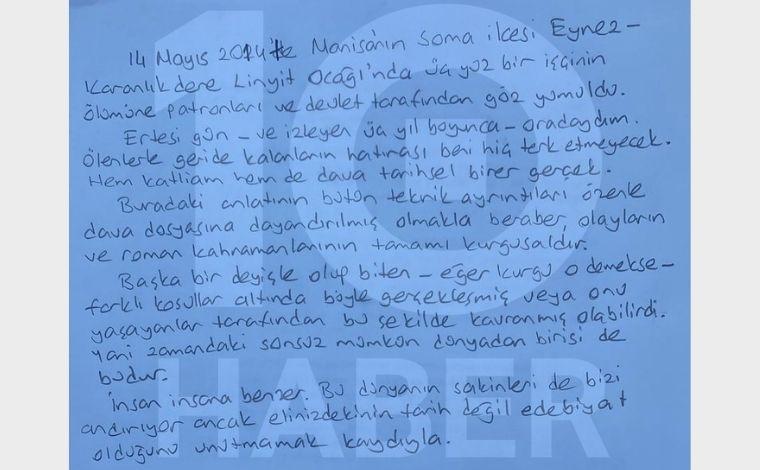 14 Mayıs 2014'te Manisa'nın Soma ilcesi Eynez-
Karanlıkdere Linyit Ocağı'nda üç yüz bir işçinin
ölümüne patronları ve devlet tarafından göz yumuldu.
Ertesi gün - ve izleyen üç yıl boyunca - oradaydım.
Ölenlerle geride kalanların hatırası beni hiç terk etmeyecek.
Hem katliam hem de dava tarihsel birer gerçek.
Buradaki anlatının bütün teknik ayrıntıları özenle
dava dosyasına dayandırılmış olmakla beraber, olayların
ve roman kahramanlarının tamamı kurgusaldır.
Başka bir deyişle olup biten - eğer kurgu o demekse -
farklı koşullar altında böyle gerçekleşmiş veya onu
yaşayanlar tarafından bu şekilde kavranmış olabilirdi.
Yani zamandaki sonsuz mümkün dünyadan birisi de
budur.
İnsan insana benzer. Bu dünyanın sakinleri de bizi
andırıyor ancak elinizdekinin tarih değil edebiyat
olduğunu unutmamak kaydıyla.
10
HABER